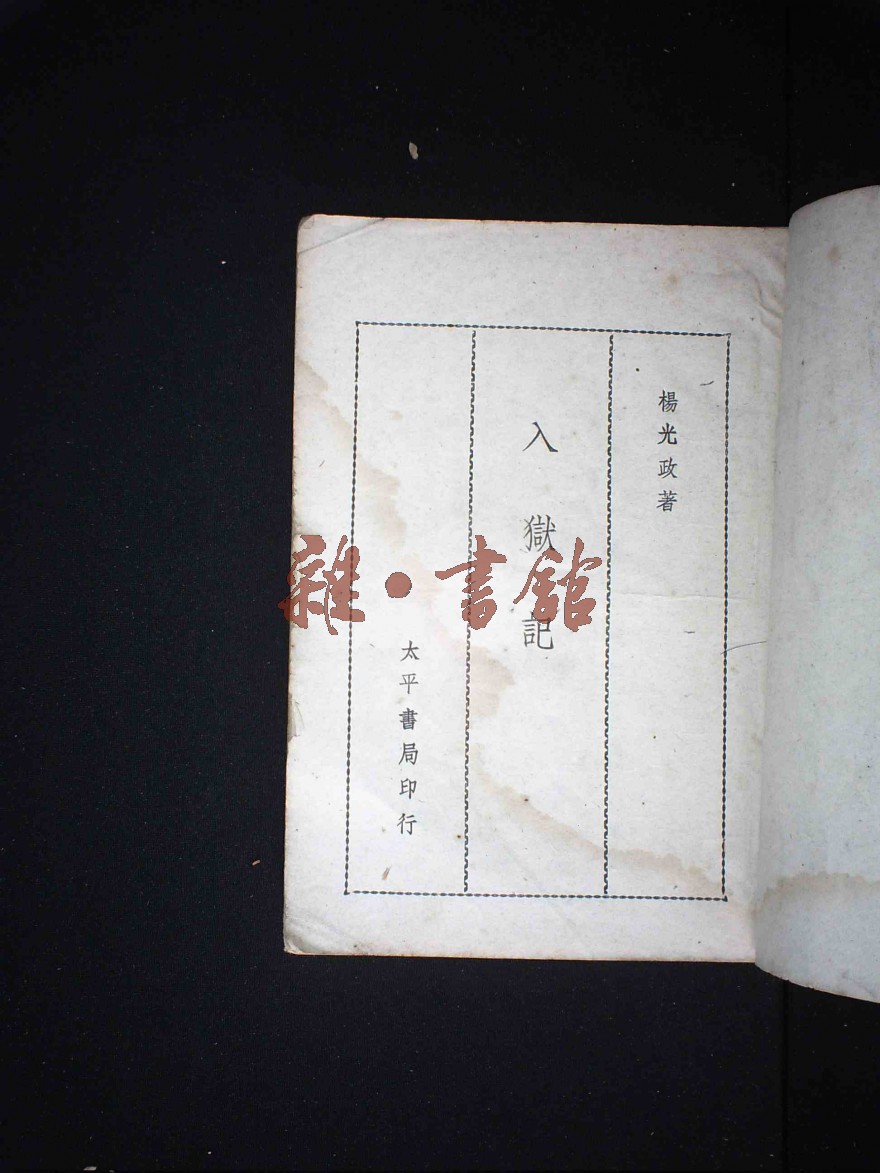 楊光政著
入獄記
太平書局印行
雜·書館